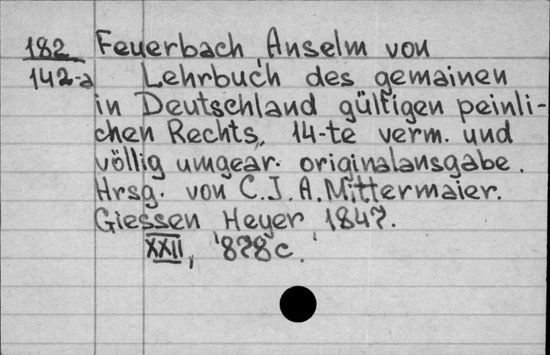 182 Feuerbach, Anselm von
142-a Lehrbuch des gemainen
in Deutschland gültigen peinli-
chen Rechts, 14-te verm. und
völlig umgear. originalansgabe.
Hrsg. von C.J.A. Mittermaier.
Giessen Heyer 1847.
XXII, 878 c.